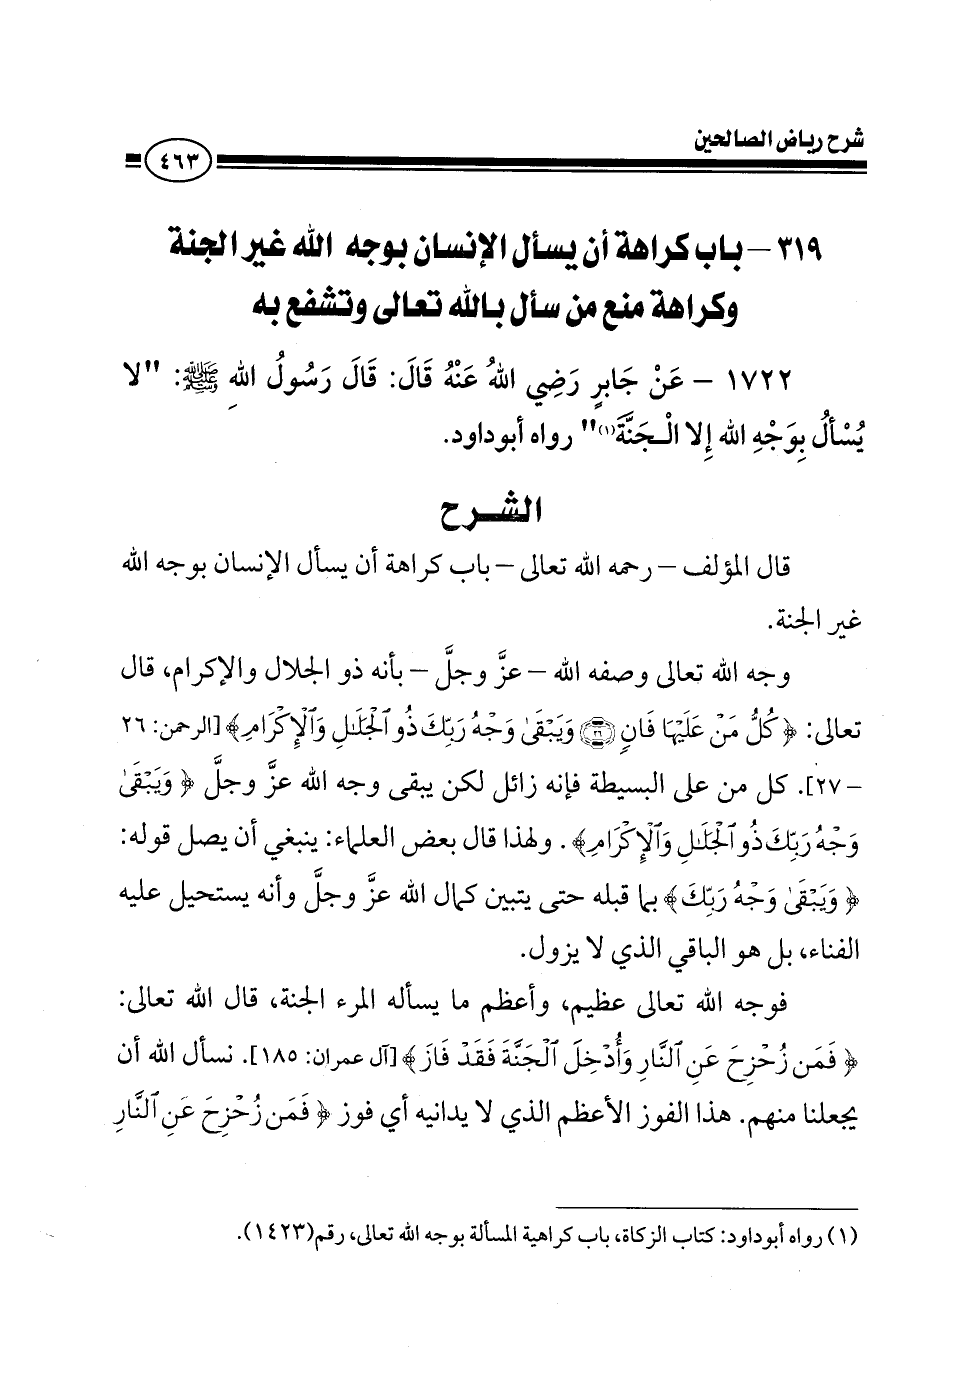 شرح رياض الصالحين
٤٦٣
٣١٩ – باب كراهة أن يسأل الإنسان بوجه الله غير الجنة
وكراهة منع من سأل بالله تعالى وتشفع به
١٧٢٢ – عَنْ جَابِرٍ رَضِي اللهُ عَنْهُ قَالَ: قَالَ رَسُولُ اللهِ ﷺ: "لا
يُسْأَلُ بِوَجْهِ الله إِلا الْـجَنَّةَ(١)" رواه أبوداود.
الشـرح
قال المؤلف – رحمه الله تعالى – باب كراهة أن يسأل الإنسان بوجه الله
غير الجنة.
وجه الله تعالى وصفه الله – عزَّ وجلَّ – بأنه ذو الجلال والإكرام، قال
تعالى: ﴿كُلُّ مَنْ عَلَيْهَا فَانٍ ۝٢٦ وَيَبْقَىٰ وَجْهُ رَبِّكَ ذُو ٱلْجَلَـٰلِ وَٱلْإِكْرَامِ﴾ [الرحمن: ٢٦
– ٢٧]. كل من على البسيطة فإنه زائل لكن يبقى وجه الله عزَّ وجلَّ ﴿وَيَبْقَىٰ
وَجْهُ رَبِّكَ ذُو ٱلْجَلَـٰلِ وَٱلْإِكْرَامِ﴾. ولهذا قال بعض العلماء: ينبغي أن يصل قوله:
﴿وَيَبْقَىٰ وَجْهُ رَبِّكَ﴾ بما قبله حتى يتبين كمال الله عزَّ وجلَّ وأنه يستحيل عليه
الفناء، بل هو الباقي الذي لا يزول.
فوجه الله تعالى عظيم، وأعظم ما يسأله المرء الجنة، قال الله تعالى:
﴿فَمَن زُحْزِحَ عَنِ ٱلنَّارِ وَأُدْخِلَ ٱلْجَنَّةَ فَقَدْ فَازَ﴾ [آل عمران: ١٨٥]. نسأل الله أن
يجعلنا منهم. هذا الفوز الأعظم الذي لا يدانيه أي فوز ﴿فَمَن زُحْزِحَ عَنِ ٱلنَّارِ
(١) رواه أبوداود: كتاب الزكاة، باب كراهية المسألة بوجه الله تعالى، رقم(١٤٢٣).